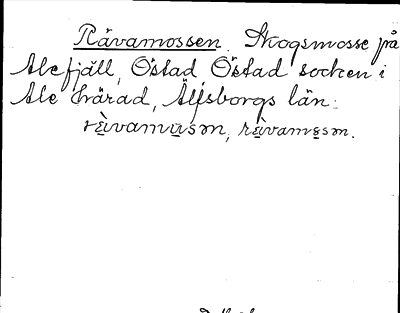 Rävamossen. Skogsmosse på
Alefjäll, Östad, Östad socken i
Ale härad, Älfsborgs län.
rävamusm, rävamosm.